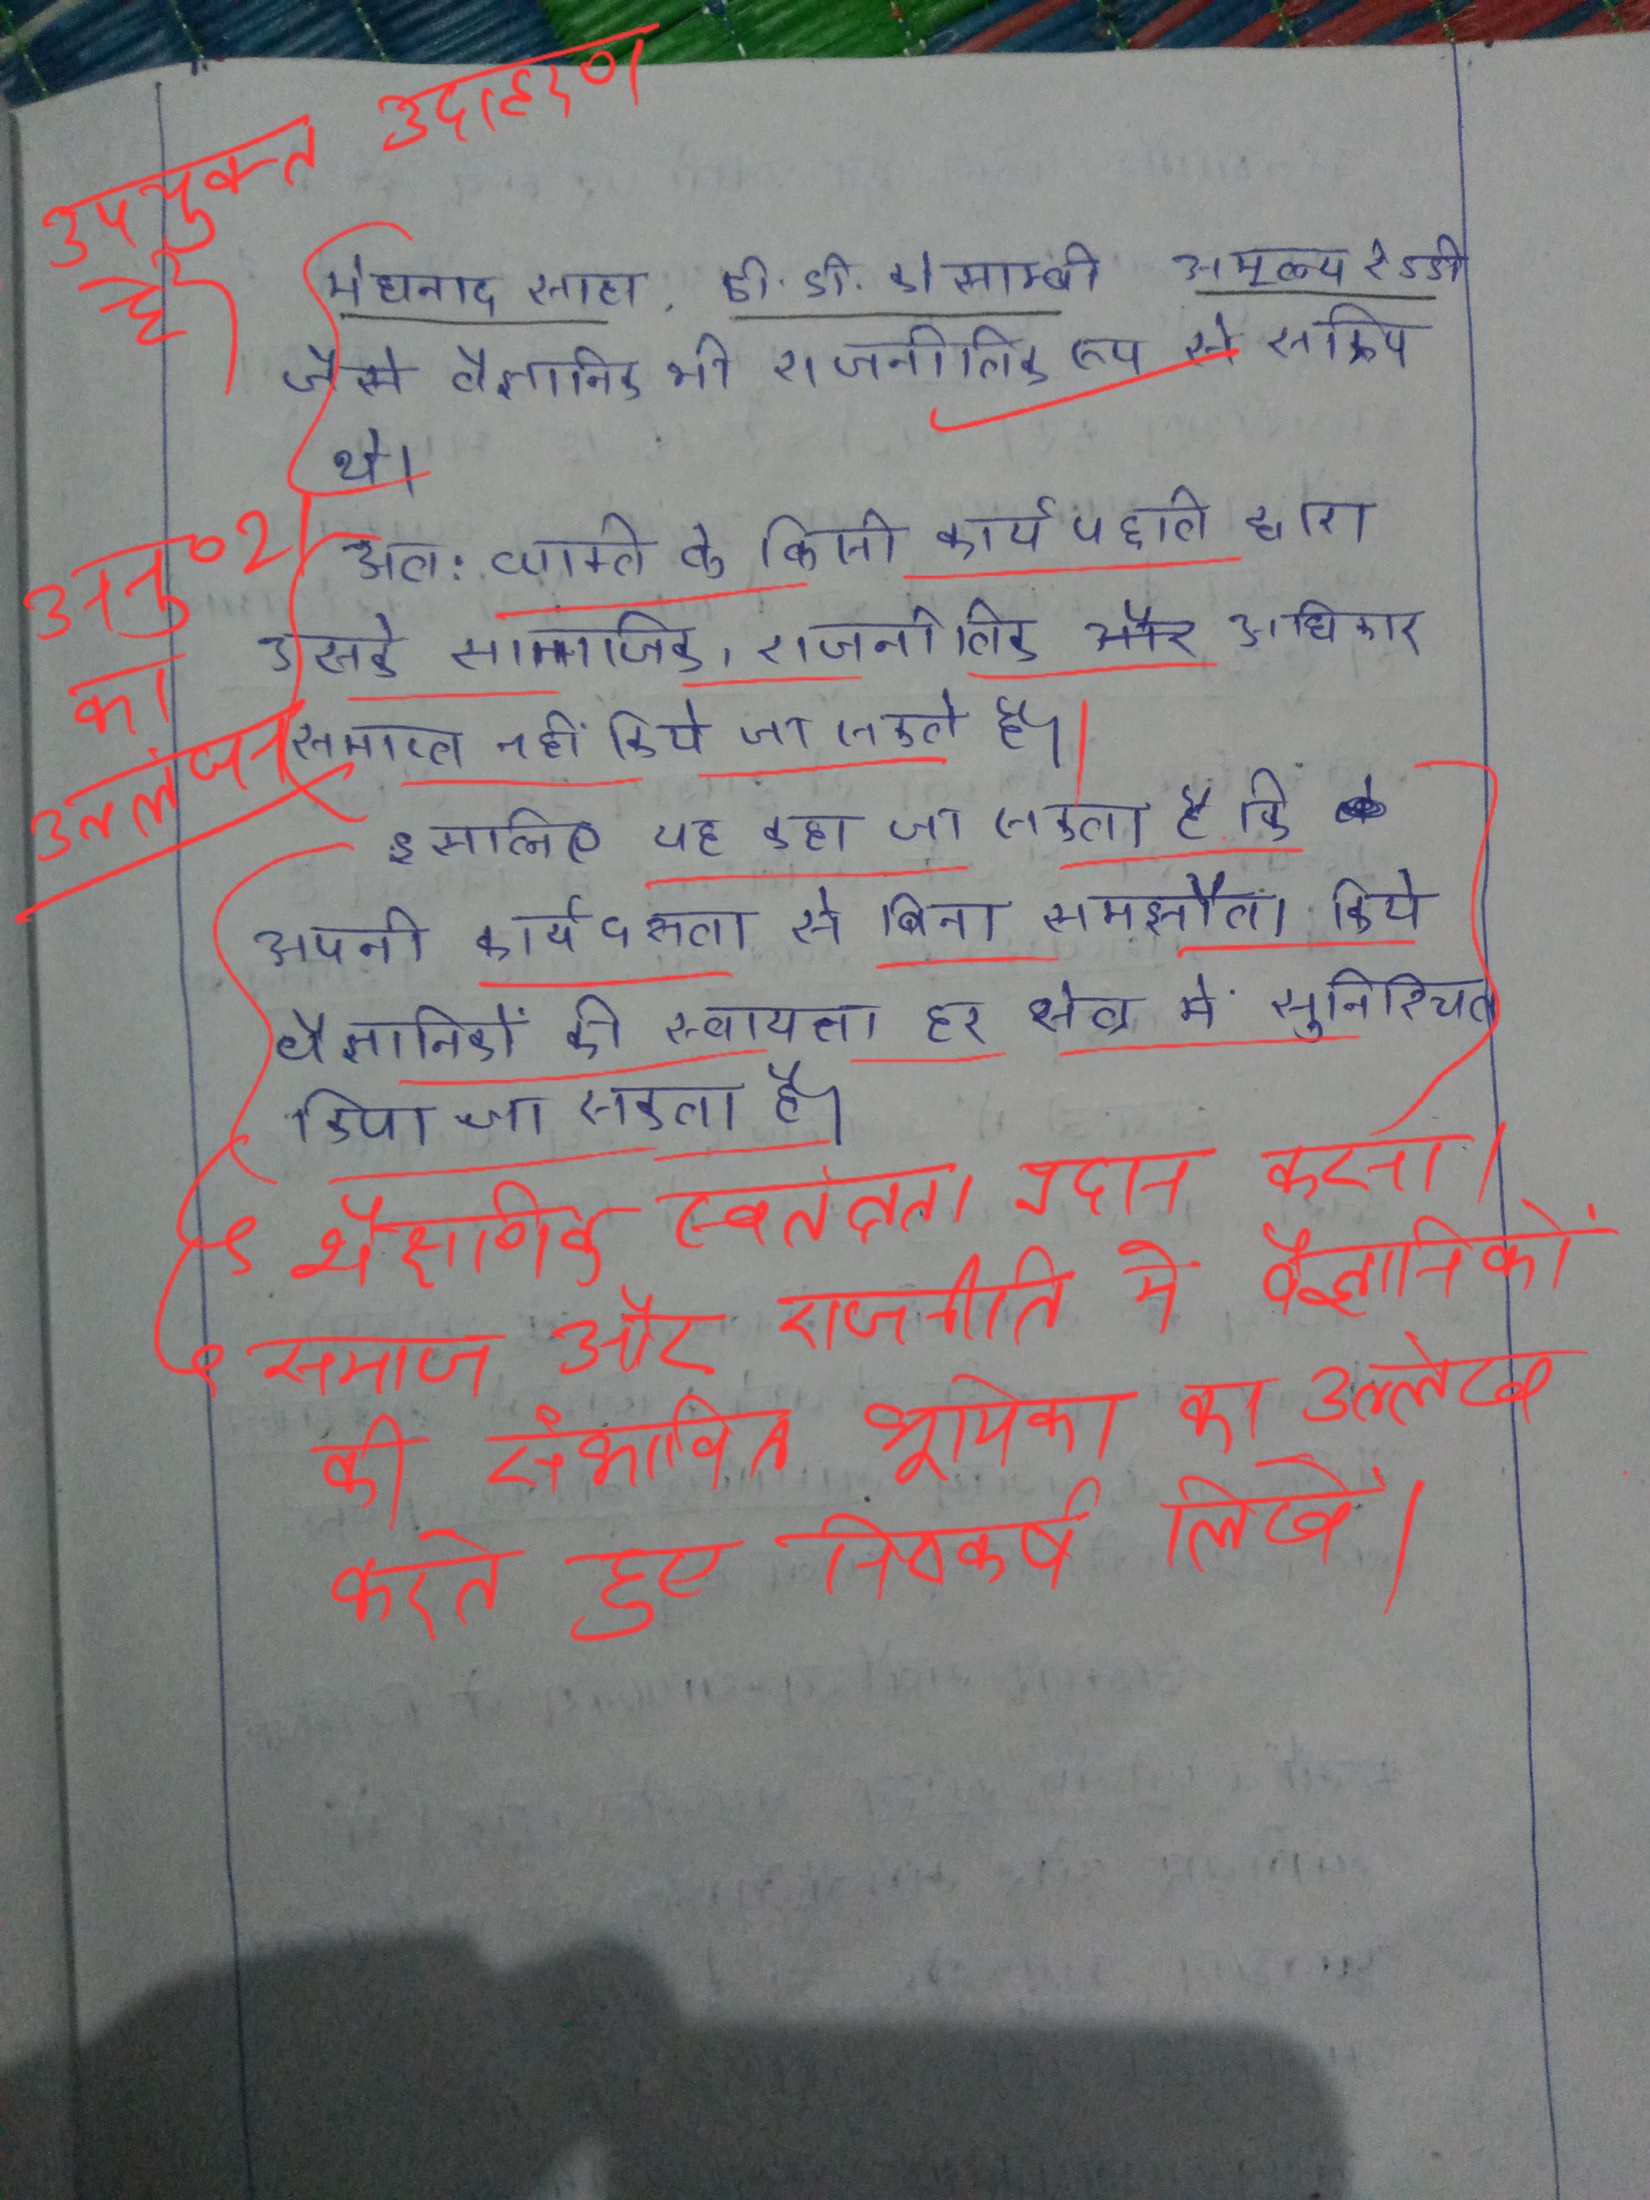 उपयुक्त उदाहरण
है।
मेघनाद साहा, डी.डी. कोसाम्बी अमूल्य रेड्डी
जैसे वैज्ञानिक भी राजनीतिक रूप से सक्रिय
थे।
अनु० 21
का
उल्लंघन
अतः व्यक्ति के किसी कार्य पद्दति द्वारा
उसके सामाजिक, राजनीतिक और अधिकार
समाप्त नहीं किये जा सकते है।
इसलिए यह कहा जा सकता है कि
अपनी कार्यक्षमता से बिना समझौता किये
वैज्ञानिकों की स्वायत्ता हर क्षेत्र में सुनिश्चित
किया जा सकता है।
शैक्षणिक स्वतंत्रता प्रदान करना।
समाज और राजनीति में वैज्ञानिकों
की संभावित भूमिका का उल्लेख
करते हुए निष्कर्ष लिखें।